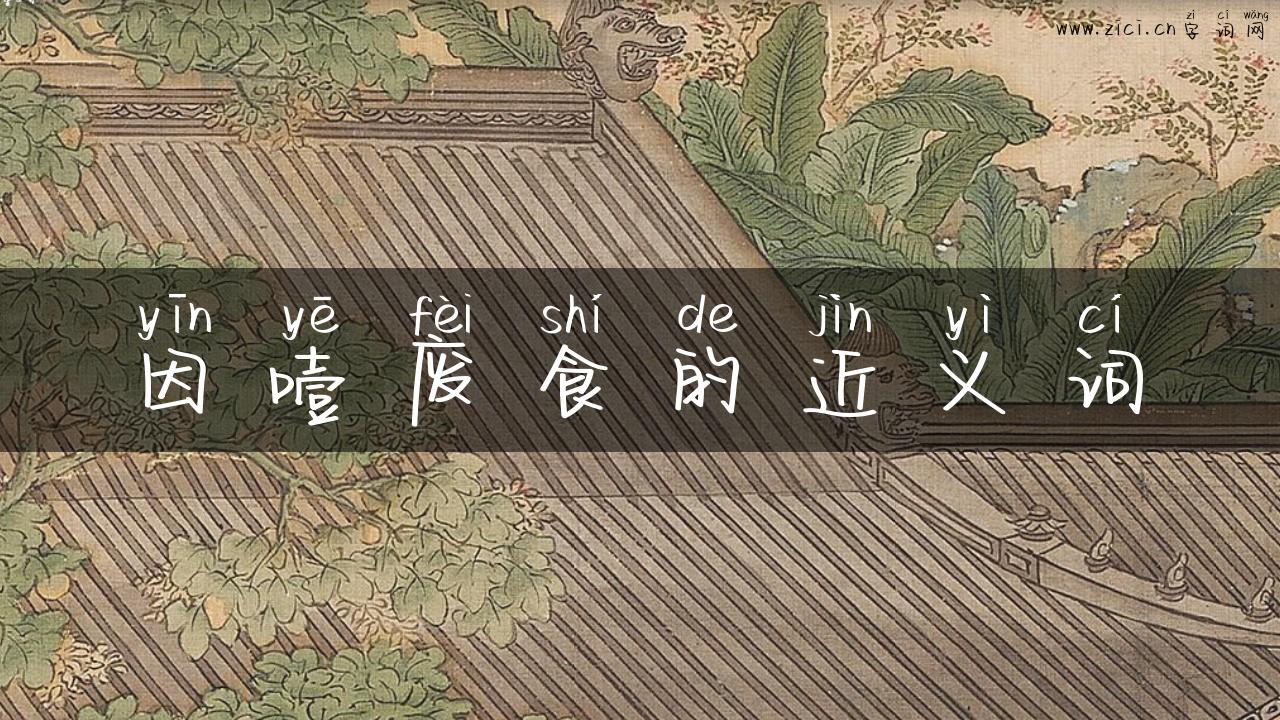 zì cí wǎng
www.zici.cn 字 词 网
yīn yē fèi shí de jìn yì cí
因 噎 废 食 的 近 义 词